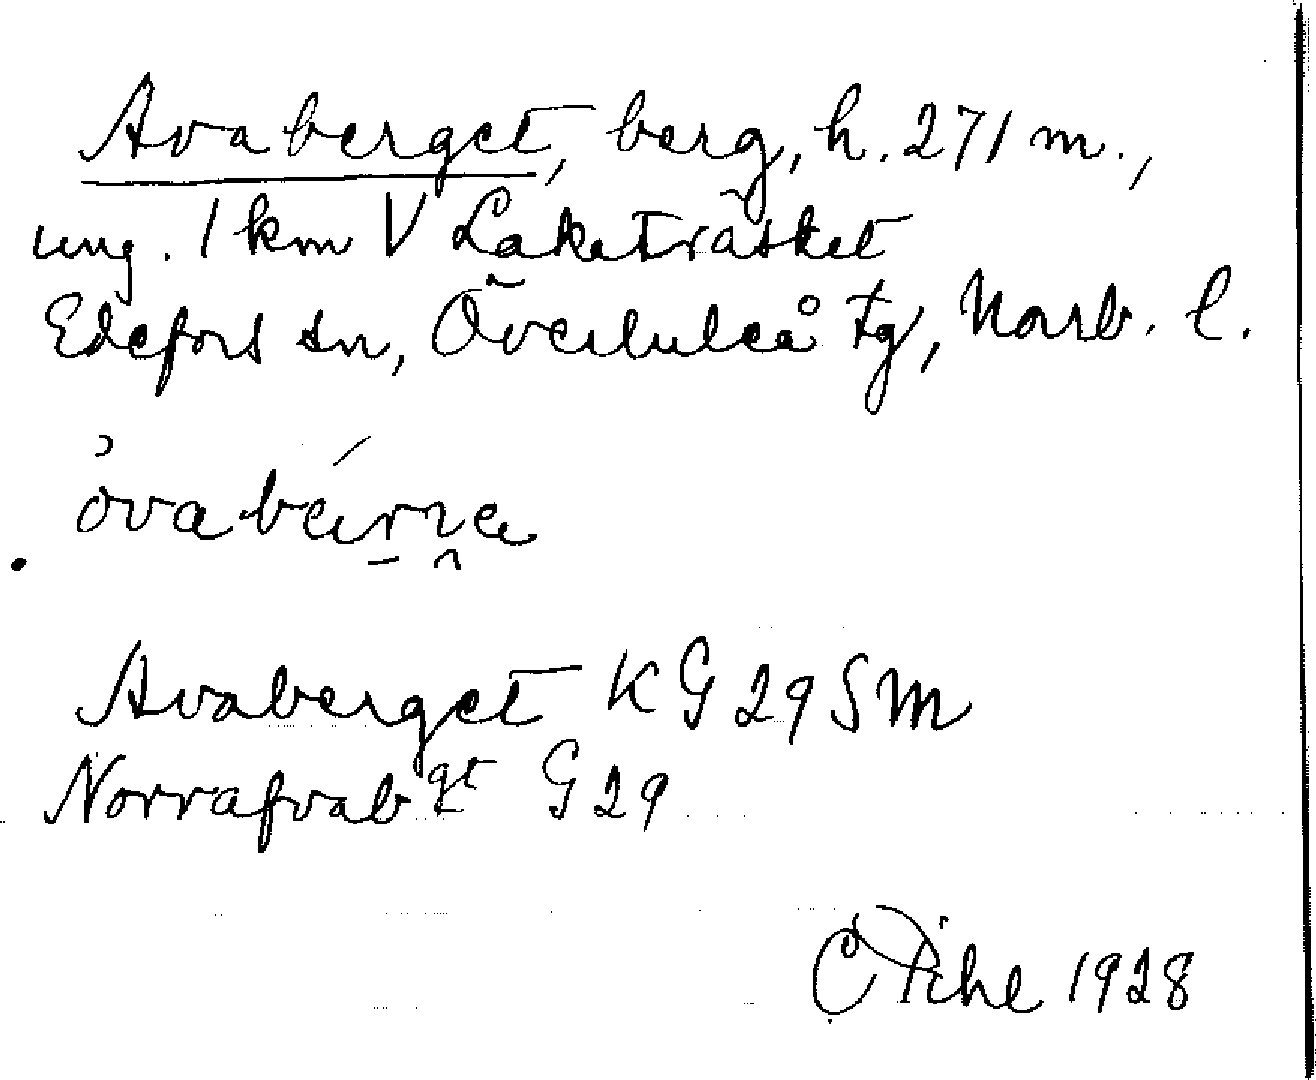 Avaberget, berg, h. 271 m.,
ung. 1 km V Laketräsket
Edefors sn, Överluleå tg, Norrb. l.
Avaberget K G 29 S M
Norrafvab gt G 29
C Pihl 1928